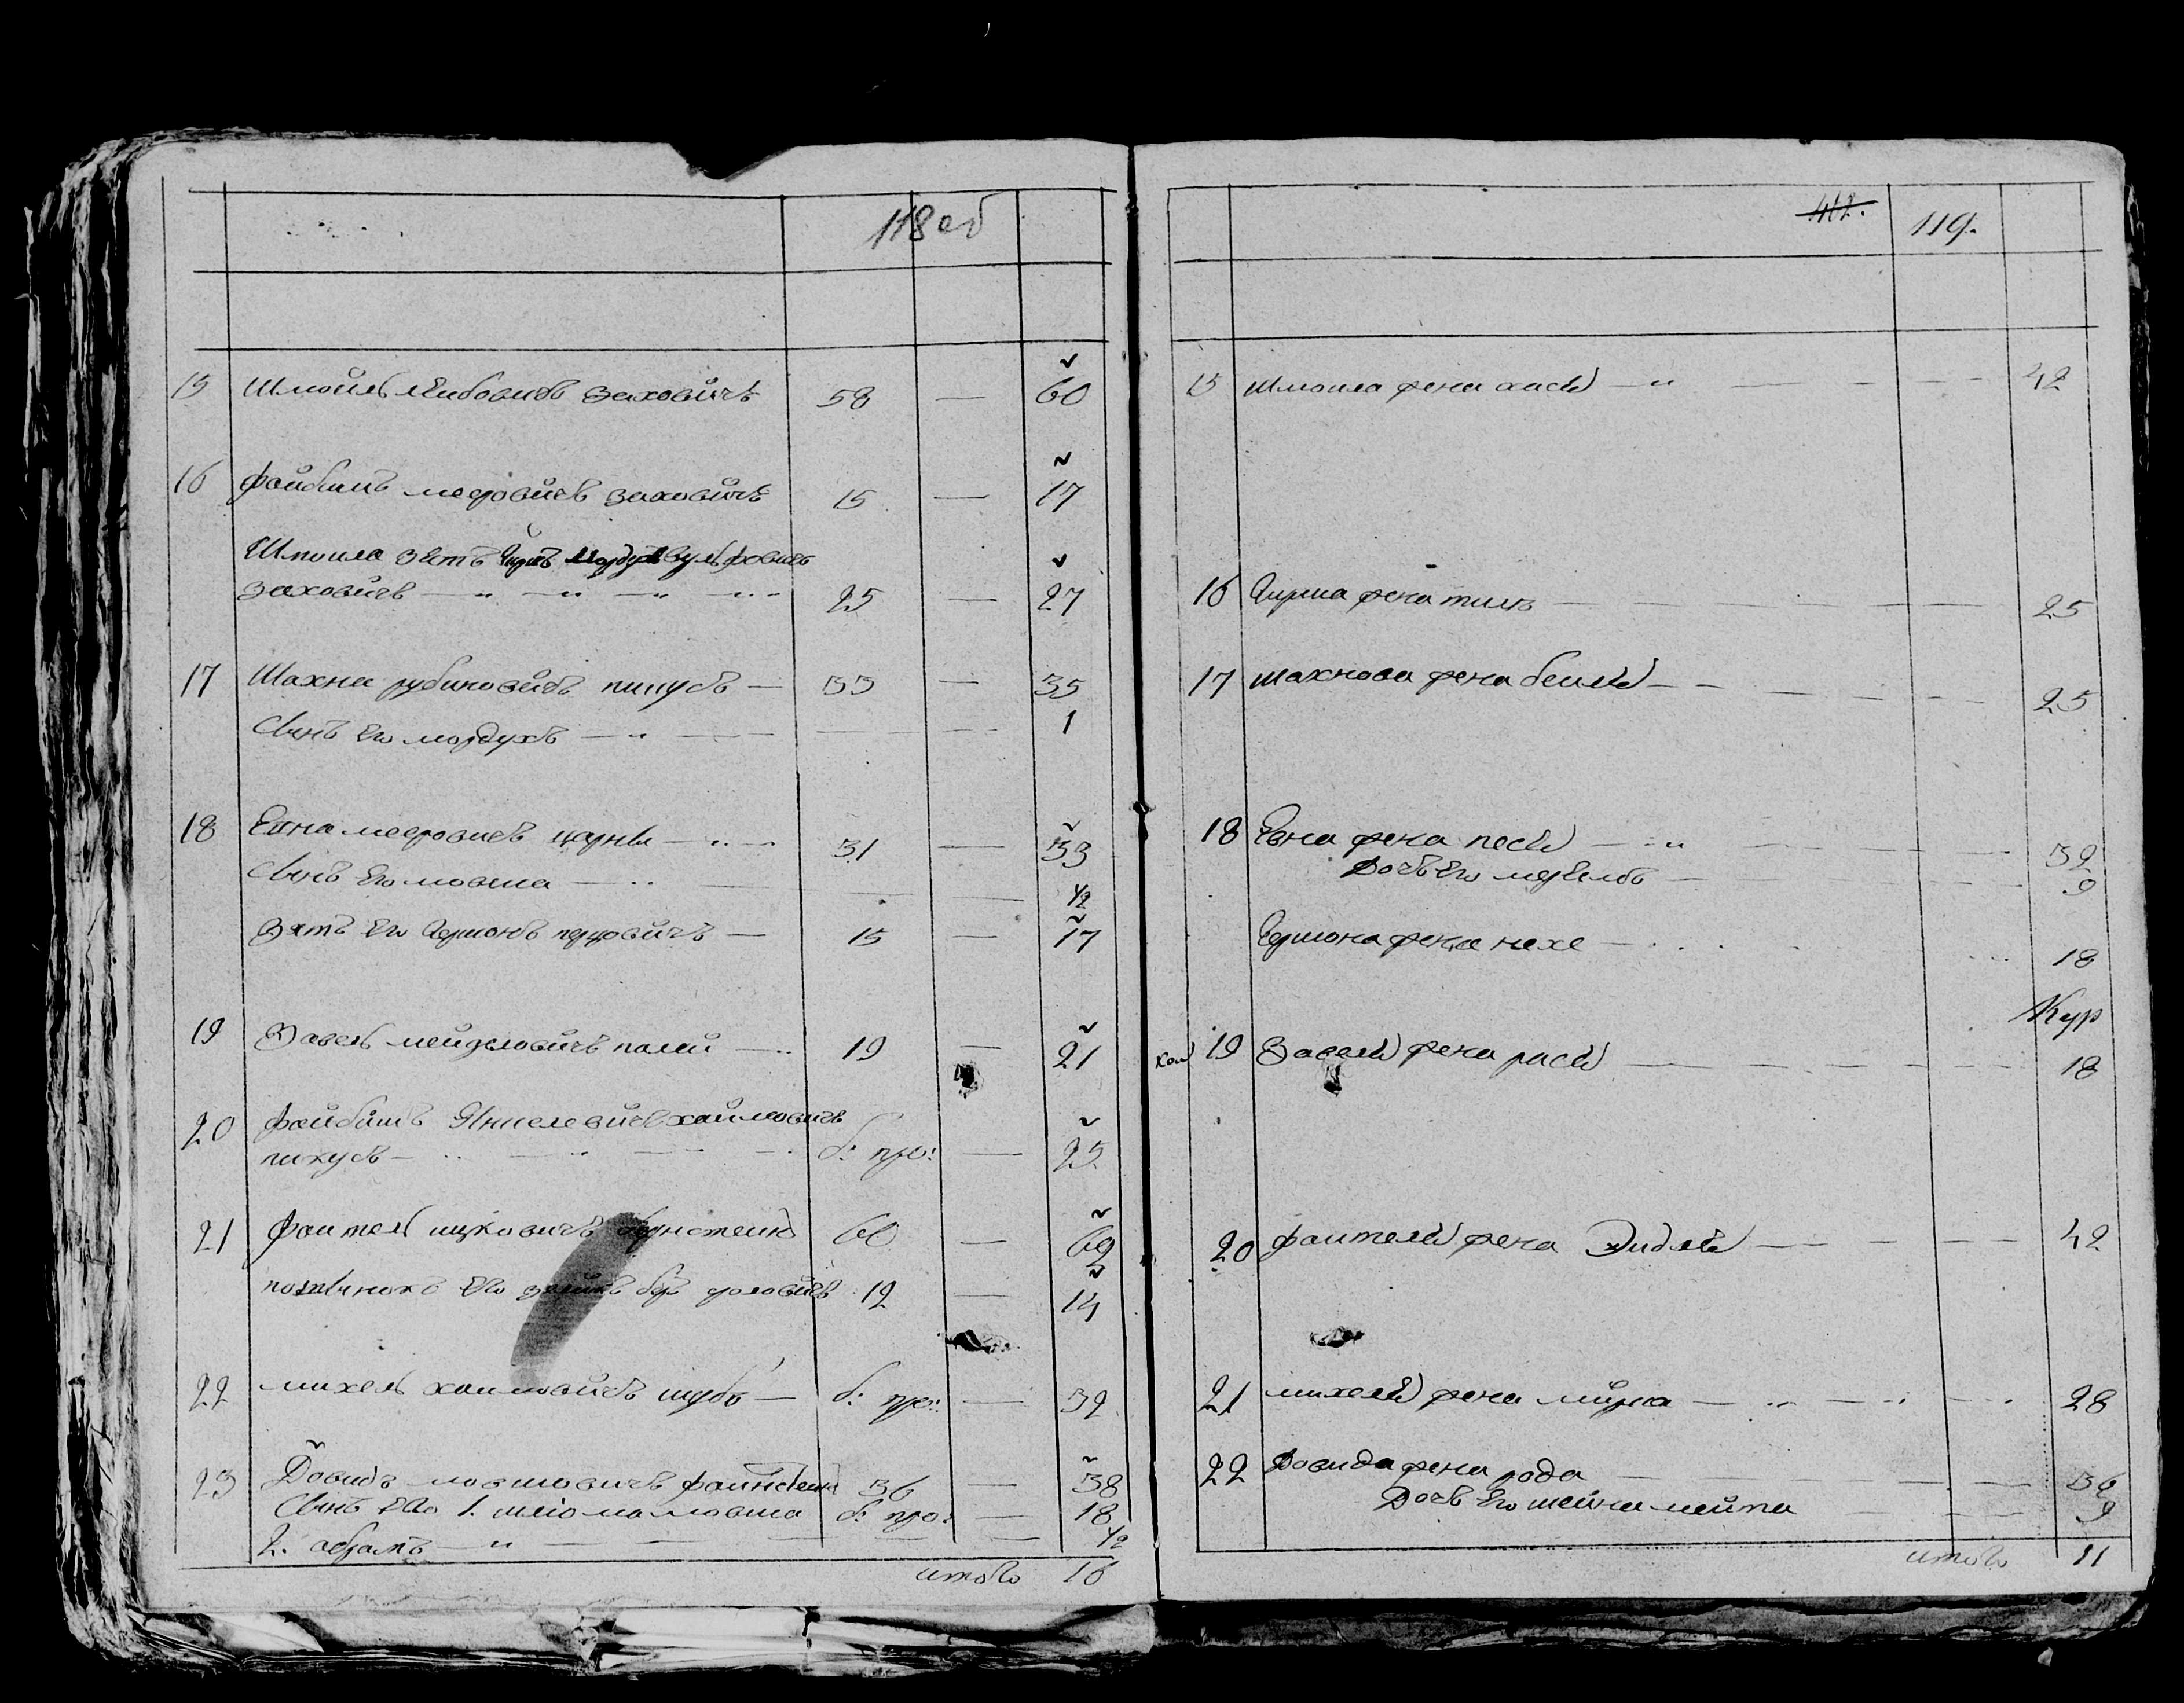 118 об
15 Шмойль Лейбовичъ Заховичъ 58 — 60
16 Файбишъ Меэровичъ Заховичъ 15 — 17
Шмоила зять Мордух Вульфовичъ
Заховичъ — „ — „ — „ — 25 — 27
17 Шахна рубиновичъ пинусъ — 33 — 35
Сынъ Его мордухъ — „ — 1
18 Евна мееровичъ — „ — 31 — 33
Сынъ Его мовша — „ — 1/2
Зять Его Гершонъ перцовичъ — 15 — 17
19 Завель мейделовичъ палей — 19 — 21
20 Файбишъ Янкелевичъ хаимовичъ
пинусъ — „ — „ — б: про: — 25
21 Фаитель ицковичъ 60 — 62
Его 12 — 14
22 михель хаимовичъ шубъ — б: про: — 32
23 Довидъ мовшовичъ файнстейнъ 36 — 38
Сынъ Его 1. шліома мовша б: про: — 18
2. абрамъ — „ — 1/2
итого 16
412.
119.
15 Шмоила жена хася — „ — 42
16 Гирша жена — 25
17 шахнова жена бейля — 25
18 Евна жена песя — „ — 32
Дочь Его — 9
Гершона жена нехе — 18
Кур
19 Завеля жена рася — 18
20 фаителя жена Эидля — 42
21 михеля жена мирка — „ — „ — 28
22 Довида жена рода — 36
Дочь Его шейна мейта — 9
итого 11